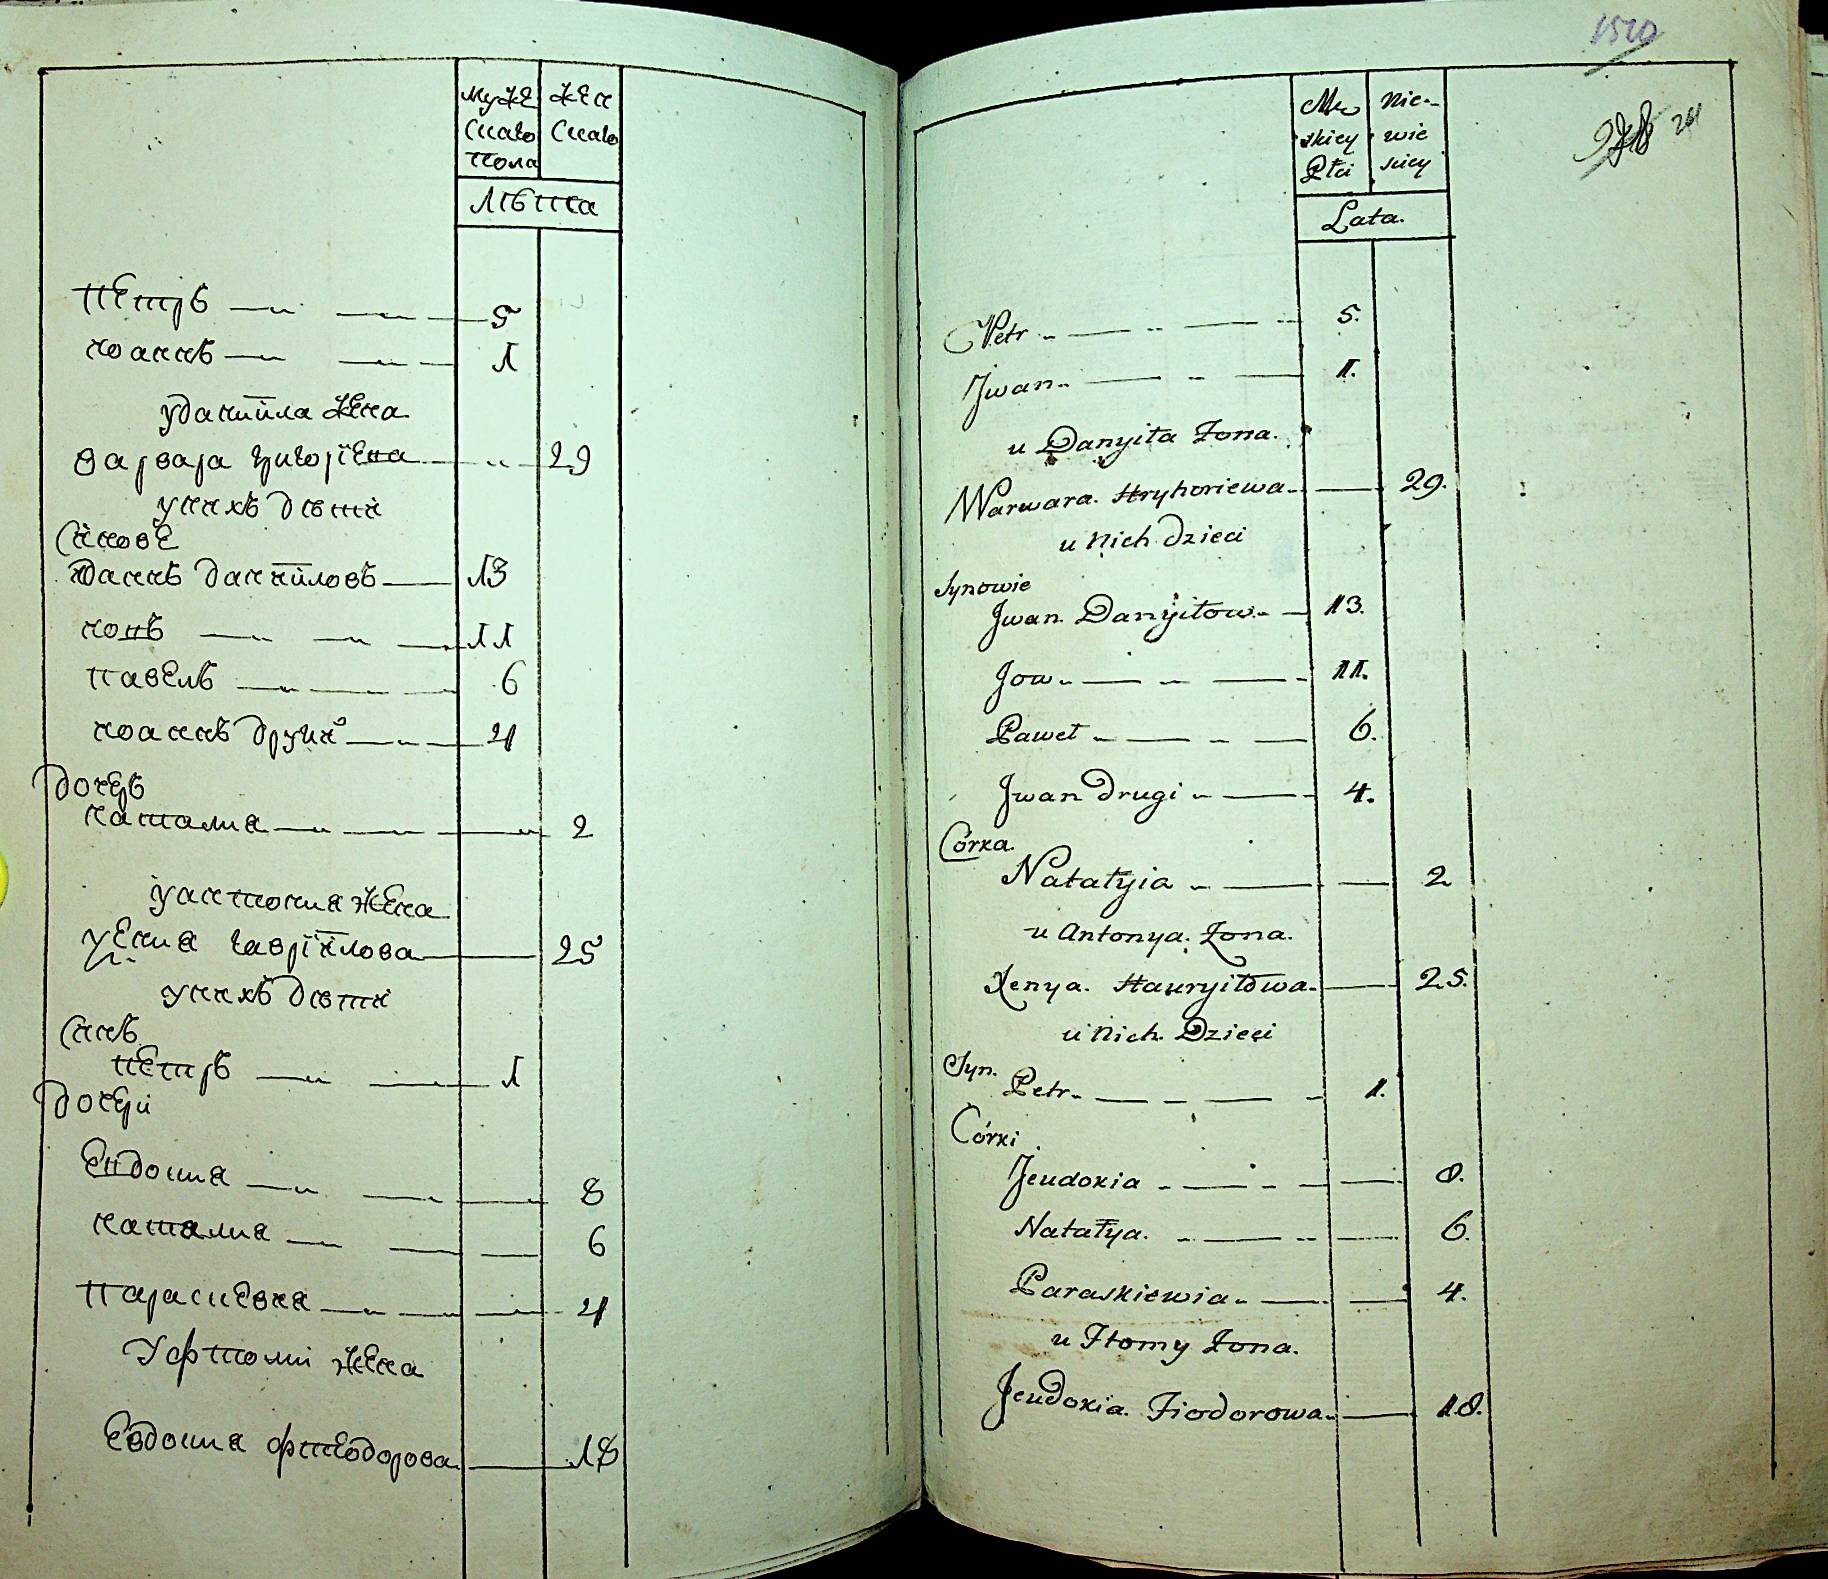 муже
скаго
пола
жен
скаго
лѣтта
петръ 5
иоаннъ 1
у данийла жена
варвара григорїева 29
у нихъ дѣти
синове
иоаннъ данийловъ 13
иовъ 11
павелъ 6
иоаннъ други 4
дочеръ
наталия 2
у антония жена
ксения гаврїйлова 25
у нихъ дѣти
синъ
петръ 1
дочери
евдокия 8
наталия 6
параскевия 4
у фтоми жена
евдокия фтеодорова 18
1510
261
Mę
zkiey
Płci
Nie-
wie
skiey
Lata.
Petr 5.
Jwan 1.
u Danyiła Żona.
Warwara. Hryhoriewa 29.
u Nich dzieci
Synowie
Jwan. Danyiłow 13.
Jow 11.
Paweł 6.
Jwan drugi 4.
Córka.
Natałyia 2
u Antonya. Żona.
Xenya. Hauryiłowa 25.
u Nich. Dzieci
Syn.
Petr 1.
Córki
Jeudokia 8.
Natałya. 6.
Paraskiewia 4.
u Ftomy Żona.
Jeudokia. Fiodorowa 18.